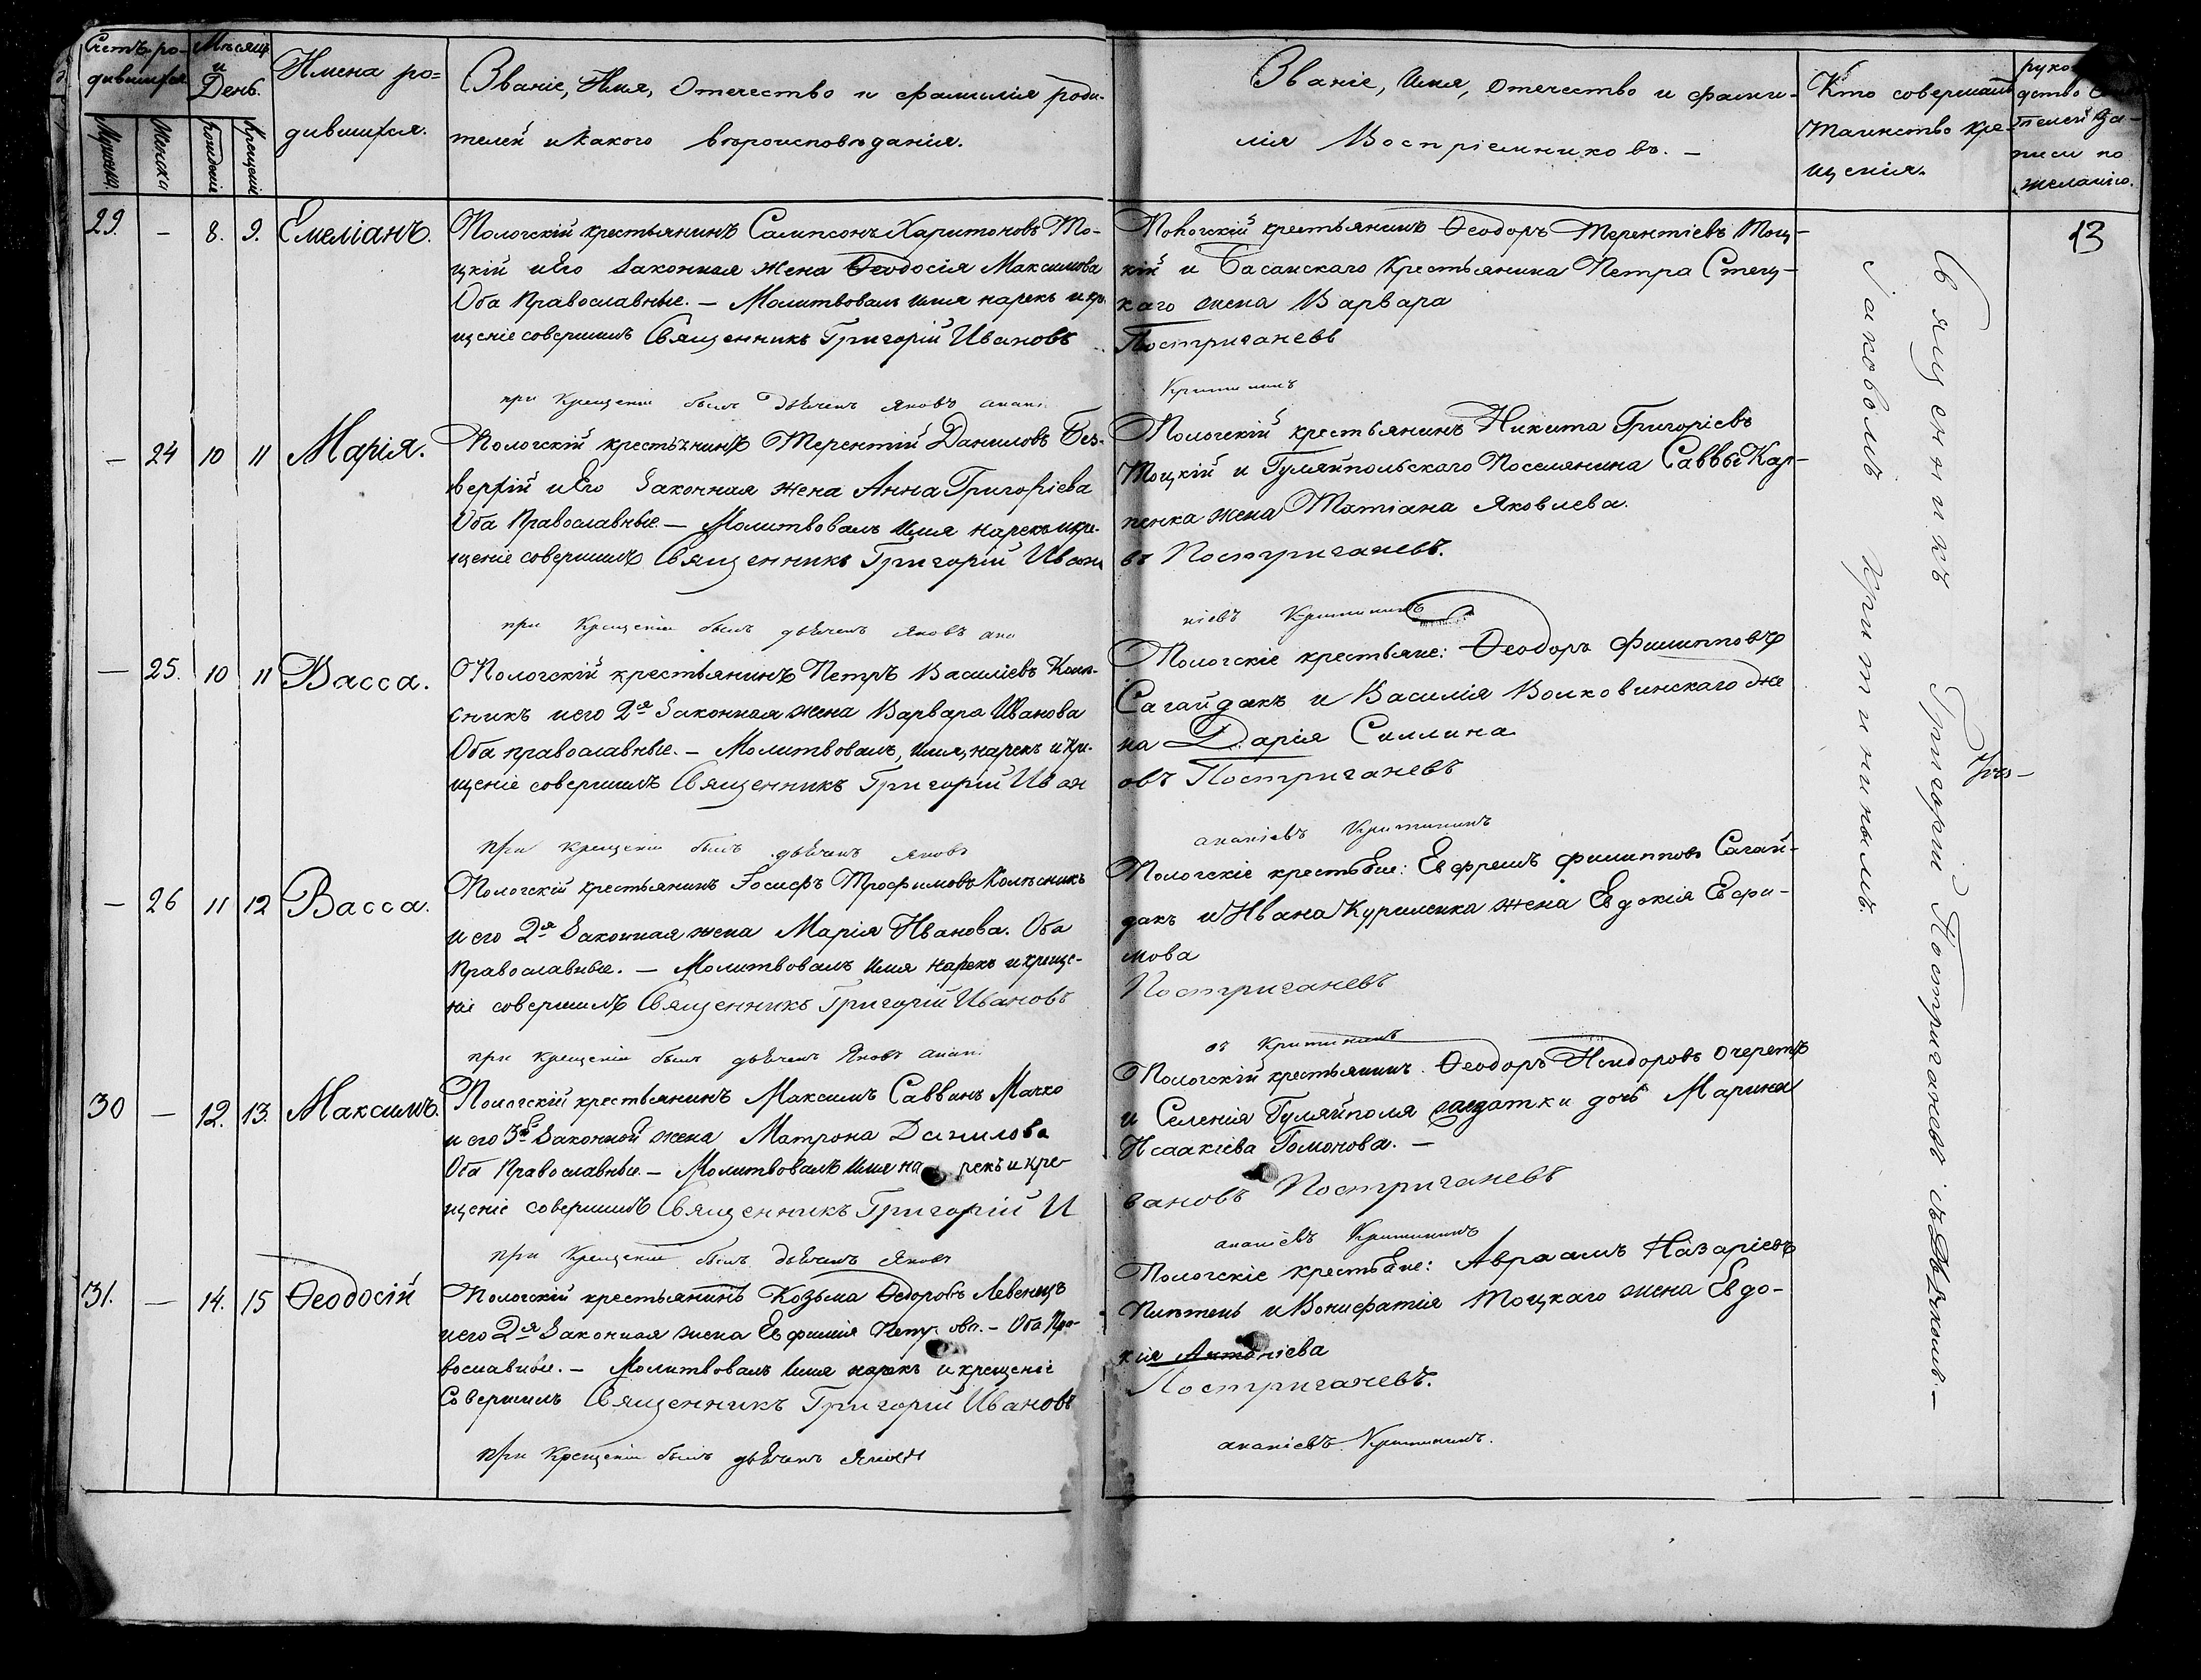 Счетъ ро-
дившихся
Мѣсяцъ
и
День.
Имена ро=
дившихся.
Званіе, Имя, Отечество и фамилія роди-
телей и какого вѣроисповѣданія.
Мужска.
Женска
Рожденіе
Крещеніе
Званіе, Имя, Отечество и фами-
лія Воспріемниковъ. —
Кто совершалъ
Таинство кре-
щенія.
писи по
желанію.
13
29. — 8. 9. Емеліанъ.
Пологскій крестьянинъ Сампсонъ Харитоновъ То-
цкій и его законная жена Ѳеодосія Максимова
Оба Православные. — Молитвовалъ имя нарекъ и кр
щеніе совершилъ Священникъ Григорій Ивановъ
при крещеніи былъ дьячекъ Яковъ анані
Пологскій крестьянинъ Ѳеодоръ Терентіевъ Тоц-
кій и Басанскаго крестьянина Петра Стец-
каго жена Варвара
Постриганевъ
Критининъ
— 24 10 11 Марія.
Пологскій крестьянинъ Терентій Даниловъ Без-
верхій и его законная жена Анна Григоріева
Оба Православные — Молитвовалъ имя нарекъ и кре-
щеніе совершилъ Священникъ Григорій Ивано
при крещеніи былъ дьячекъ Яковъ ана
Пологскій крестьянинъ Никита Григоріевъ
Тоцкій и Гуляйпольскаго Поселянина Саввы Кар-
пенка жена Татіана Яковлева.
въ Постриганевъ.
ніевъ Критининъ
— 25. 10 11 Васса.
Пологскій крестьянинъ Петръ Василіевъ Коле-
сникъ и его 2я законная жена Варвара Иванова
Оба православные. — Молитвовалъ, имя, нарекъ и кре-
щеніе совершилъ Священникъ Григорій Иван
при крещеніи былъ дьячекъ Яковъ
Пологскіе крестьяне: Ѳеодоръ Филипповъ
Сагайдакъ и Василія Волковинскаго же
на Дарія Силлина
овъ Постриганевъ
ананіевъ Критининъ
— 26 11 12 Васса.
Пологскій крестьянинъ Іосифъ Трофимовъ Колѣсникъ
и его 2я законная жена Марія Иванова. Оба
Православные. — Молитвовалъ имя нарекъ и креще-
ніе совершилъ Священникъ Григорій Ивановъ
при крещеніи былъ дьячекъ Яковъ анані
Пологскіе крестьяне: Ефремъ Филипповъ Сагай-
дакъ и Ивана Куриленка жена Евдокія Ефи-
мова
Постриганевъ
въ Критининъ
30 — 12. 13. Максимъ.
Пологскій крестьянинъ Максимъ Саввинъ Мачко
и его 3й законной жена Матрона Данилова
Оба Православные — Молитвовалъ имя на рекъ и кре-
щеніе совершилъ Священникъ Григорій И
при крещеніи былъ дьячекъ Яковъ
Пологскій крестьянинъ. Ѳеодоръ Исидоровъ Очеретъ
и Селенія Гуляйполя солдатки дочь Марина
Исаакіева Гомонова. —
вановъ Постриганевъ
ананіевъ Критининъ
31. — 14. 15 Ѳеодосій
Пологскій крестьянинъ Козьма Ѳедоровъ Левенецъ
и его 2я законная жена Евфимія Петр ова. — Оба Пра-
вославные. — Молитвовалъ имя нарекъ и крещеніе
Совершилъ Священникъ Григорій Ивановъ
при крещеніи былъ дьячекъ Яковъ
Пологскіе крестьяне: Авраамъ Назаріевъ
и Вонифатія Тоцкаго жена Евдо-
кія Антоніева
Постриганевъ.
ананіевъ Критининъ.
Священникъ Григорій Постриганевъ съ Дьячкомъ —
Іаковомъ Критининымъ.